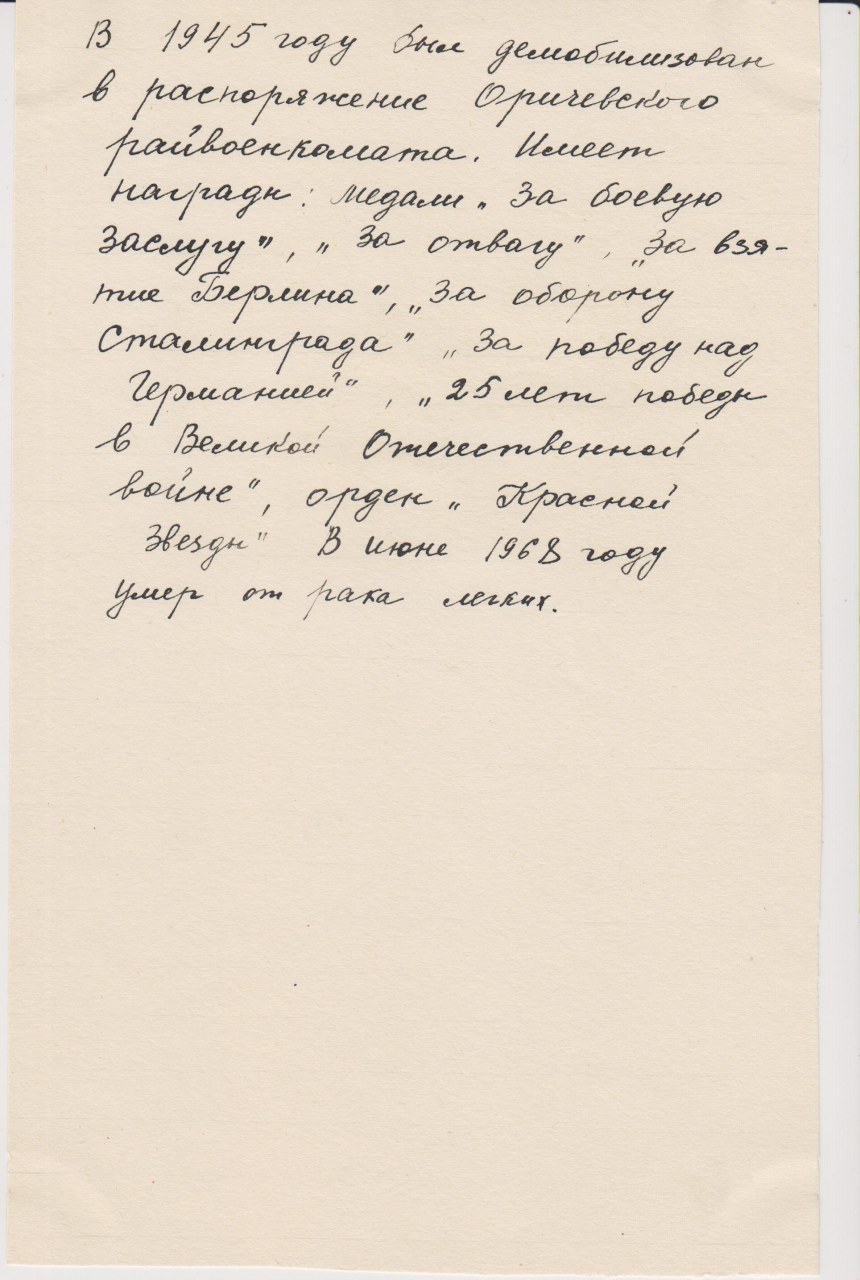 В 1945 году был демобилизован
в распоряжение Оричевского
райвоенкомата. Имеет
награды: медали „За боевую
заслугу", „За отвагу", „За взя-
тие Берлина", „За оборону
Сталинграда" „За победу над
Германией", „25 лет победы
в Великой Отечественной
войне", орден „Красной
Звезды" В июне 1968 году
умер от рака легких.